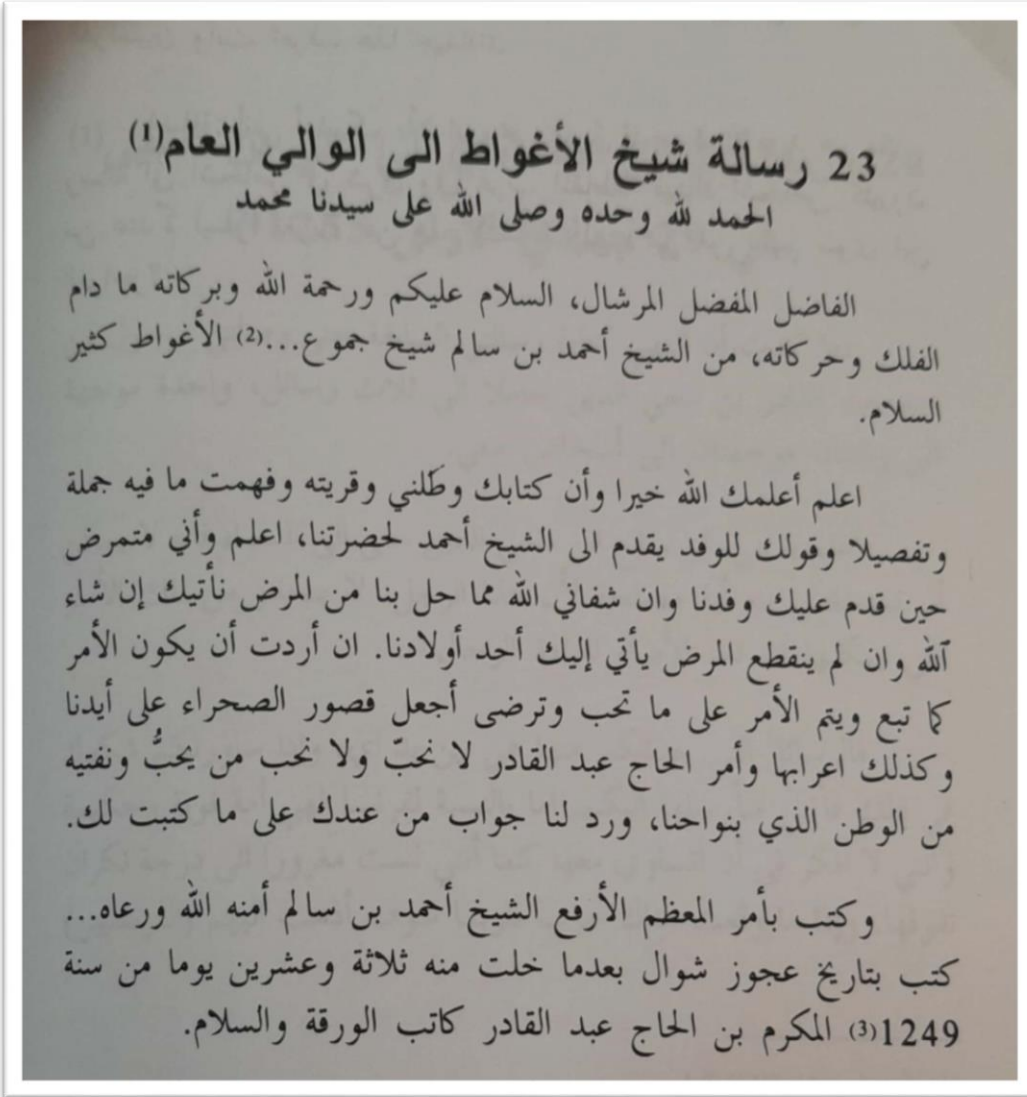 23 رسالة شيخ الأغواط الى الوالي العام(1)
الحمد لله وحده وصلى الله على سيدنا محمد
الفاضل المفضل المرشال، السلام عليكم ورحمة الله وبركاته ما دام
الفلك وحركاته، من الشيخ أحمد بن سالم شيخ جموع...(2) الأغواط كثير
السلام.
اعلم أعلمك الله خيرا وأن كتابك وطَلني وقريته وفهمت ما فيه جملة
وتفصيلا وقولك للوفد يقدم الى الشيخ أحمد لحضرتنا، اعلم وأني متمرض
حين قدم عليك وفدنا وان شفاني الله مما حل بنا من المرض نأتيك إن شاء
آلله وان لم ينقطع المرض يأتي إليك أحد أولادنا. ان أردت أن يكون الأمر
كما تبع ويتم الأمر على ما تحب وترضى أجعل قصور الصحراء على أيدنا
وكذلك اعرابها وأمر الحاج عبد القادر لا نحبّ ولا نحب من يحبُّ ونفتيه
من الوطن الذي بنواحنا، ورد لنا جواب من عندك على ما كتبت لك.
وكتب بأمر المعظم الأرفع الشيخ أحمد بن سالم أمنه الله ورعاه...
كتب بتاريخ عجوز شوال بعدما خلت منه ثلاثة وعشرين يوما من سنة
1249(3) المكرم بن الحاج عبد القادر كاتب الورقة والسلام.